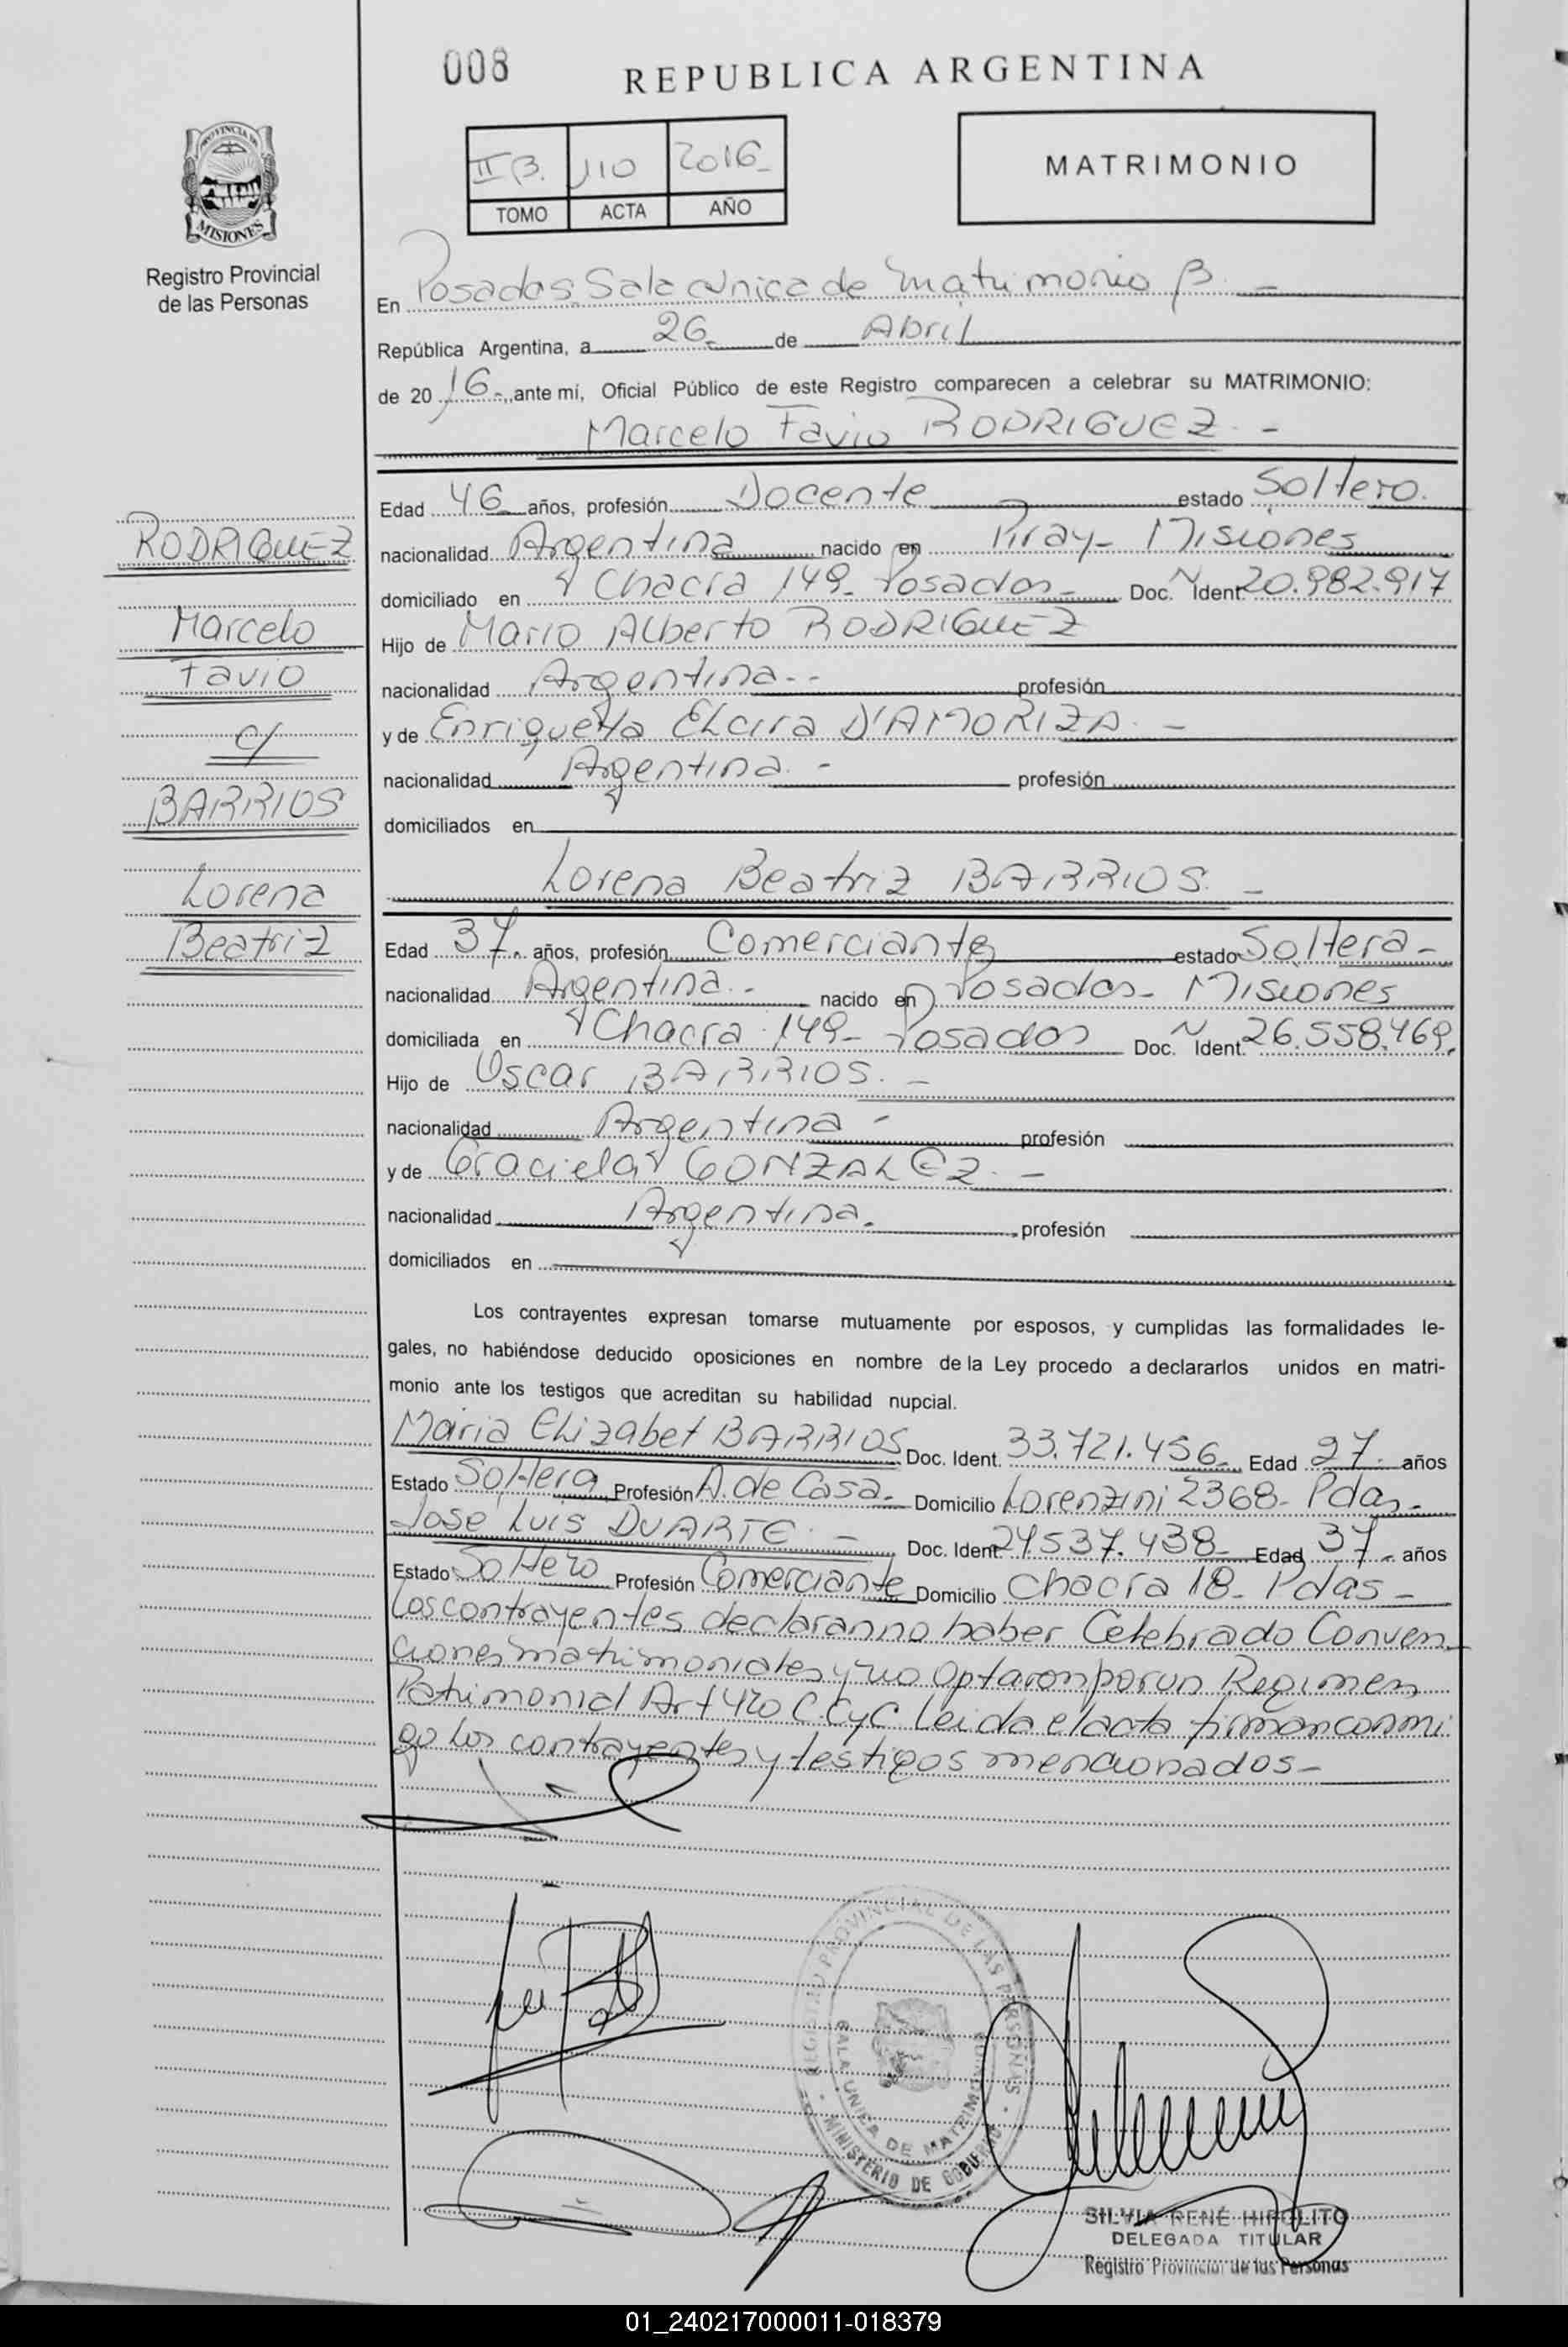 008
REPUBLICA ARGENTINA
II B. 110 2016
TOMO ACTA AÑO
MATRIMONIO
PROVINCIA DE
MISIONES
Registro Provincial
de las Personas
En Posadas Sala Unica de Matrimonio B. -
República Argentina, a 26 de Abril
de 2016, ante mí, Oficial Público de este Registro comparecen a celebrar su MATRIMONIO:
Marcelo Favio RODRIGUEZ. -
Edad 46 años, profesión Docente estado Soltero.
nacionalidad Argentina nacido en Piray - Misiones
domiciliado en Chacra 149 - Posadas - Doc. N Ident. 20.982.917
Hijo de Mario Alberto RODRIGUEZ
nacionalidad Argentina - - profesión
y de Enriqueta Elcira D'AMORIZA. -
nacionalidad Argentina. - profesión
domiciliados en
RODRIGUEZ
Marcelo
Favio
c/
BARRIOS
Lorena
Beatriz
Lorena Beatriz BARRIOS. -
Edad 37. años, profesión Comerciante estado Soltera -
nacionalidad Argentina. - nacido en Posadas - Misiones
domiciliada en Chacra 149 - Posadas Doc. N Ident. 26.558.469.
Hijo de Oscar BARRIOS. -
nacionalidad Argentina - profesión
y de Graciela GONZALEZ. -
nacionalidad Argentina. profesión
domiciliados en
Los contrayentes expresan tomarse mutuamente por esposos, y cumplidas las formalidades le-
gales, no habiéndose deducido oposiciones en nombre de la Ley procedo a declararlos unidos en matri-
monio ante los testigos que acreditan su habilidad nupcial.
Maria Elizabet BARRIOS Doc. Ident. 33.721.456 Edad 27. años
Estado Soltera Profesión A. de Casa. Domicilio Lorenzini 2368 - Pdas -
José Luis DUARTE. - Doc. Ident. 24.537.438 Edad 37 años
Estado Soltero Profesión Comerciante Domicilio Chacra 18 - Pdas -
Los contrayentes declaran no haber Celebrado Conven
ciones matrimoniales y no optaron por un Regimen
Patrimonial Art 420 C.C y C. Leida el acta firman conmi
go los contrayentes y testigos mencionados -
REGISTRO PROVINCIAL DE LAS PERSONAS
SALA UNICA DE MATRIMONIO
MINISTERIO DE GOBIERNO
SILVIA RENÉ HIPOLITO
DELEGADA TITULAR
Registro Provincial de las Personas
01_240217000011-018379